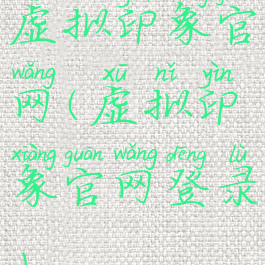 虚拟印象官
wǎng xū nǐ yìn
网(虚拟印
xiàng guān wǎng dēng lù
象官网登录